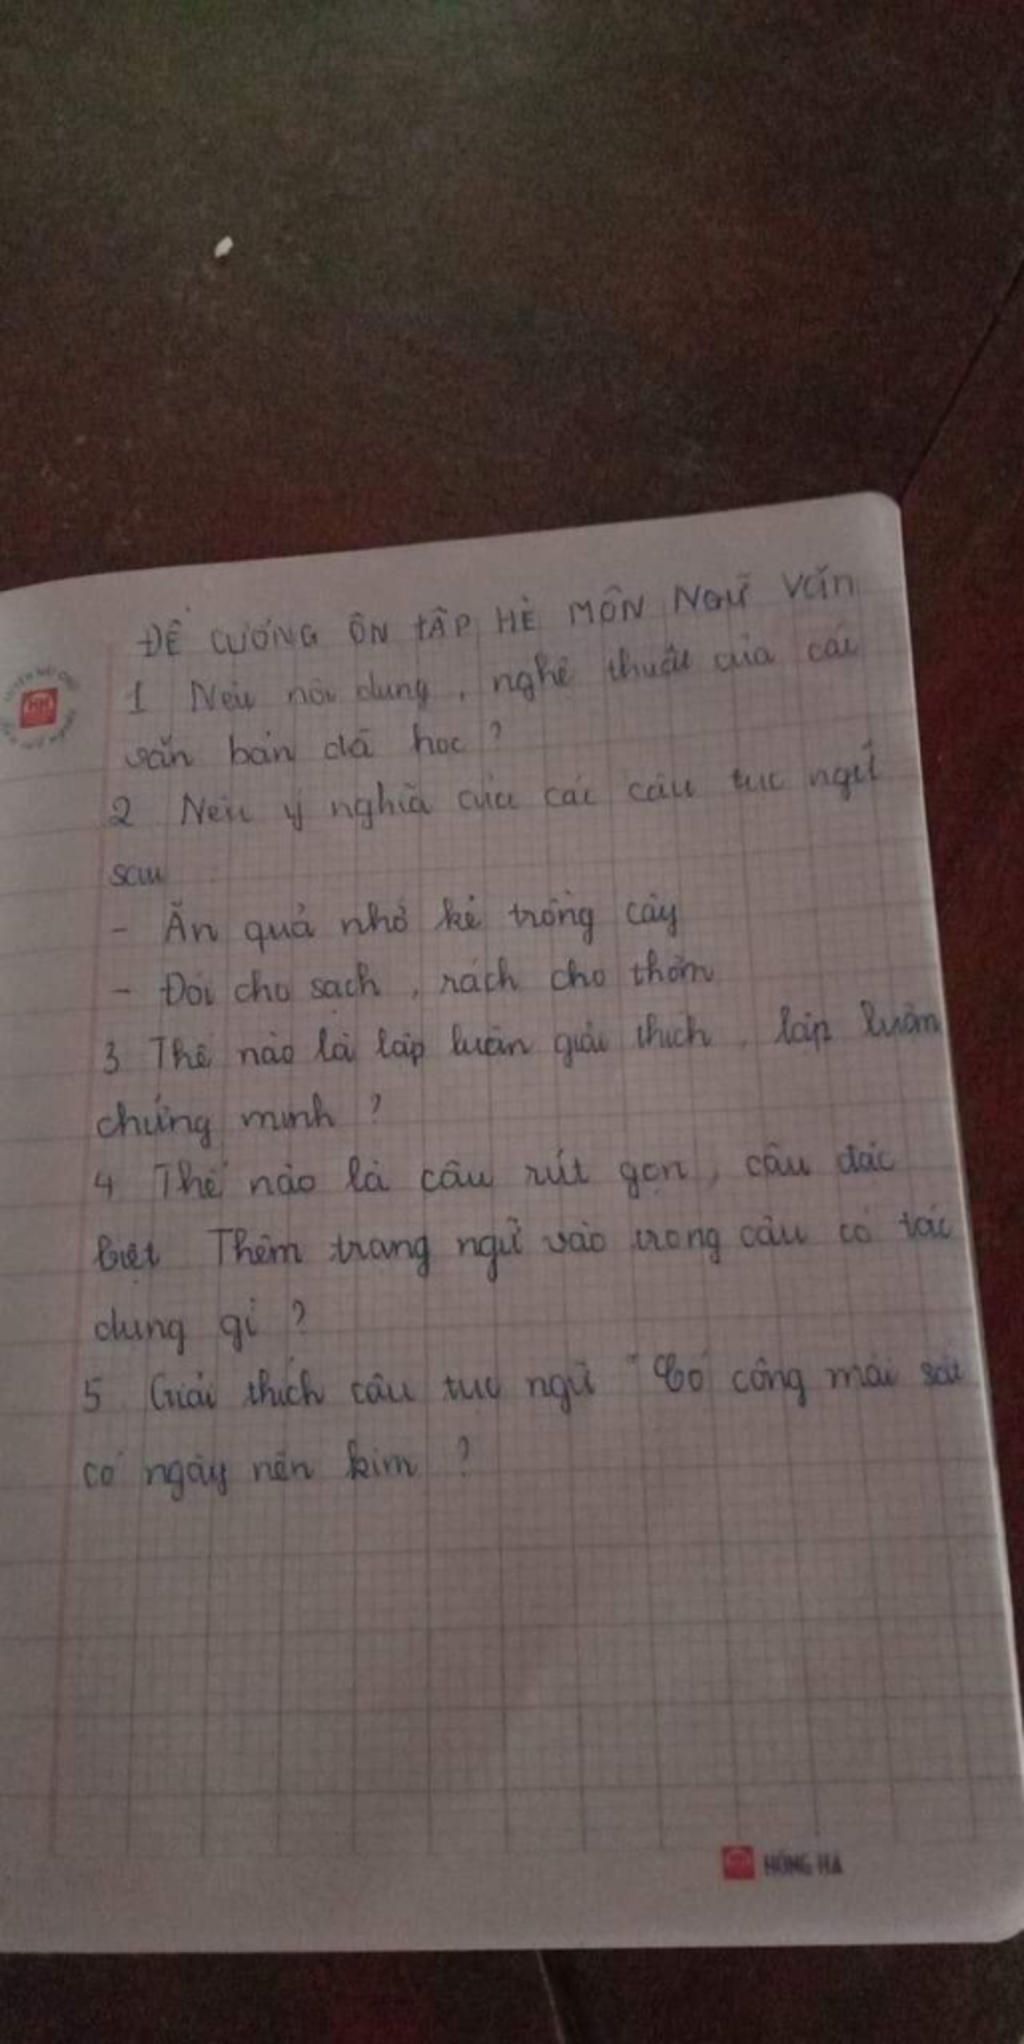 ĐỀ CƯƠNG ÔN TẬP HÈ MÔN NGỮ Văn
1 Nêu nội dung, nghệ thuật của các
văn bản đã học ?
2 Nêu ý nghĩa của các câu tục ngữ
sau :
- Ăn quả nhớ kẻ trồng cây
- Đói cho sạch, rách cho thơm
3 Thế nào là lập luận giải thích, lập luận
chứng minh ?
4 Thế nào là câu rút gọn, câu đặc
biệt Thêm trạng ngữ vào trong câu có tác
dụng gì ?
5 Giải thích câu tục ngữ "Có công mài sắt
có ngày nên kim ?
HỒNG HÀ